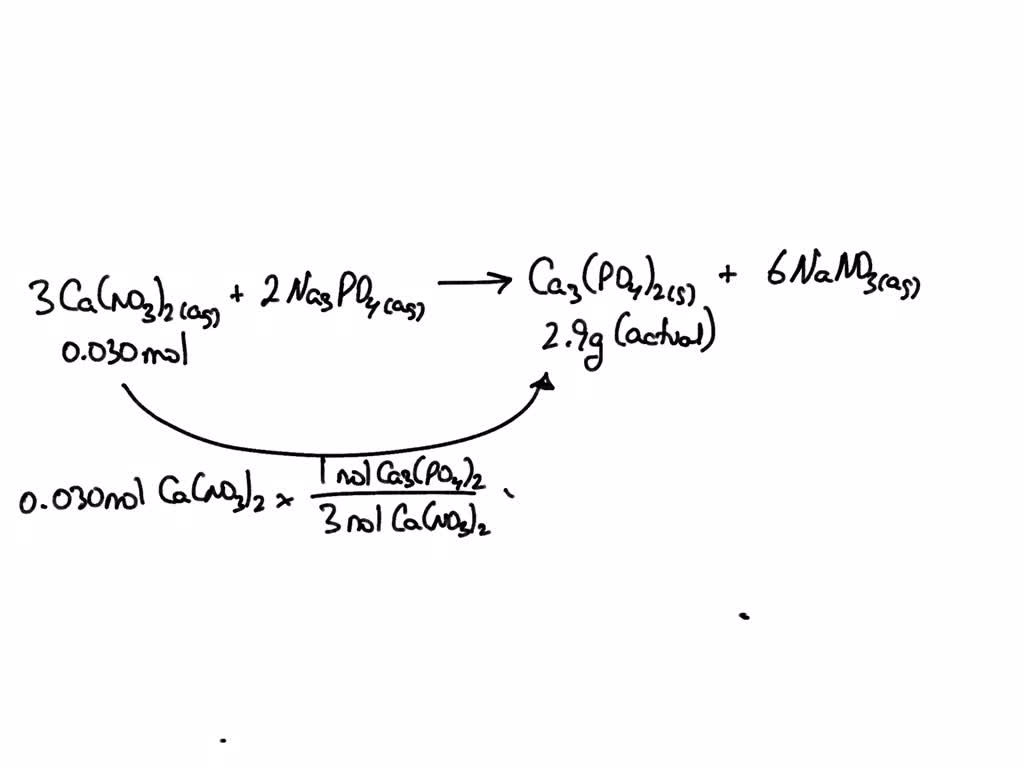 3Ca(NO3)2(aq) + 2Na3PO4(aq) → Ca3(PO4)2(s) + 6NaNO3(aq)
0.030mol 2.9g (actual)
0.030mol Ca(NO3)2 × 1 mol Ca3(PO4)2 / 3 mol Ca(NO3)2